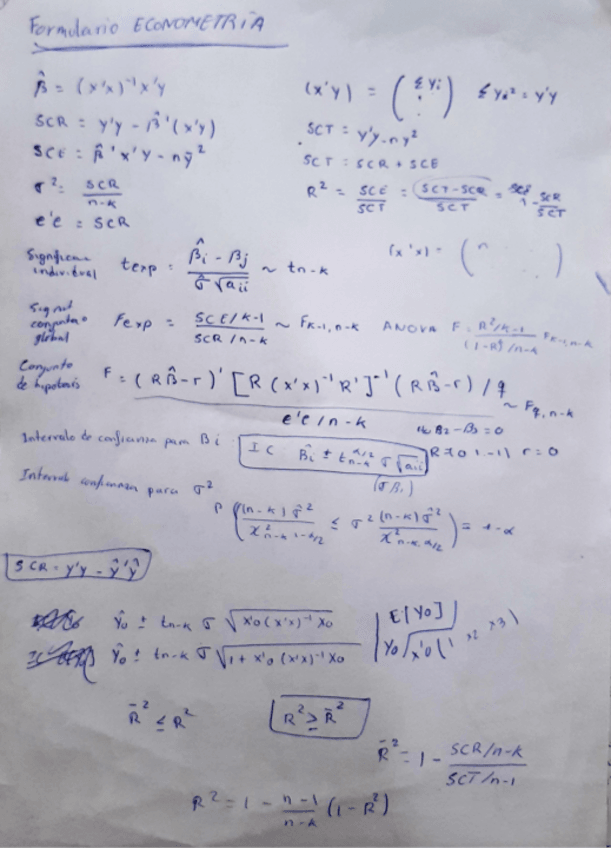 Formulario ECONOMETRIA
β̂ = (x'x)⁻¹x'y
(x'y) = (Σyi ⋮) Σyi² = y'y
SCR = y'y - β̂'(x'y)
SCT = y'y - ny²
SCE = β̂'x'y - nȳ²
SCT = SCR + SCE
σ² = SCR / n-k
R² = SCE / SCT = (SCT - SCR) / SCT = 1 - SCR / SCT
e'e = SCR
(x'x) = (n ⋱)
Significan individual texp = (β̂i - βj) / (σ̂ √aii) ~ tn-k
conjunta o global Fexp = (SCE/k-1) / (SCR/n-k) ~ Fk-1,n-k ANOVA F = (R²/k-1) / ((1-R²)/n-k) Fk-1,n-k
Conjunto de hipotesis F = (Rβ̂-r)' [R(x'x)⁻¹R']⁻¹ (Rβ̂-r)/q / (e'e/n-k) ~ Fq,n-k
B2 - B3 = 0
Intervalo de confianza para Bi IC B̂i ± tn-k^α/2 σ √aii R=(0 1 -1) r = 0
(σ̂Bi)
Interval confianza para σ²
P((n-k)σ̂² / χ²n-k 1-α/2 ≤ σ² (n-k)σ̂² / χ²n-k α/2) = 1-α
SCR = y'y - ŷ'ŷ
Ŷo ± tn-k σ √x'o(x'x)⁻¹xo E[Yo]
Ŷo ± tn-k σ √1 + x'o(x'x)⁻¹xo Yo x'o(1 x2 x3)
R̄² ≤ R² R² ≥ R̄²
R̄² = 1 - (SCR/n-k) / (SCT/n-1)
R² = 1 - (n-1 / n-k)(1-R²)